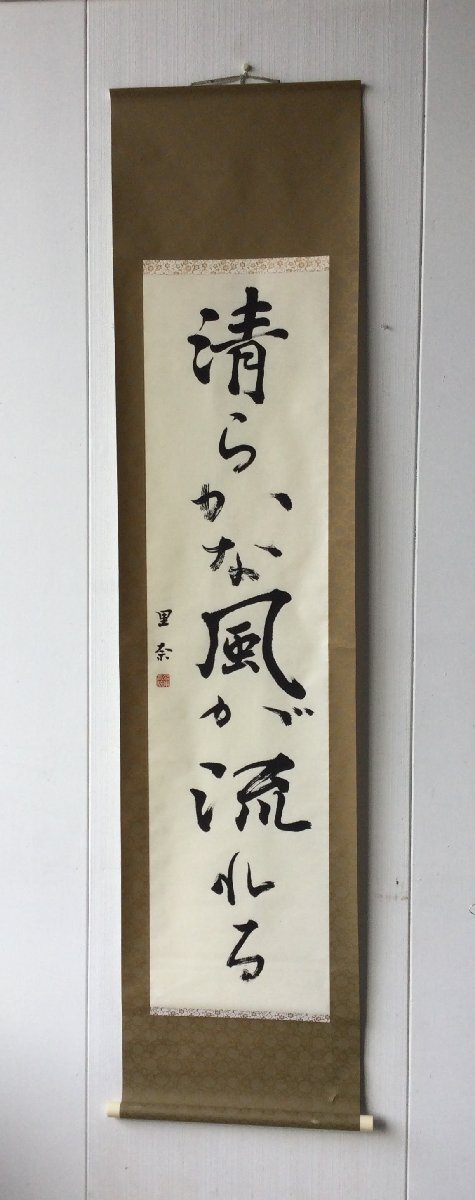 清らかな風が流れる
里奈